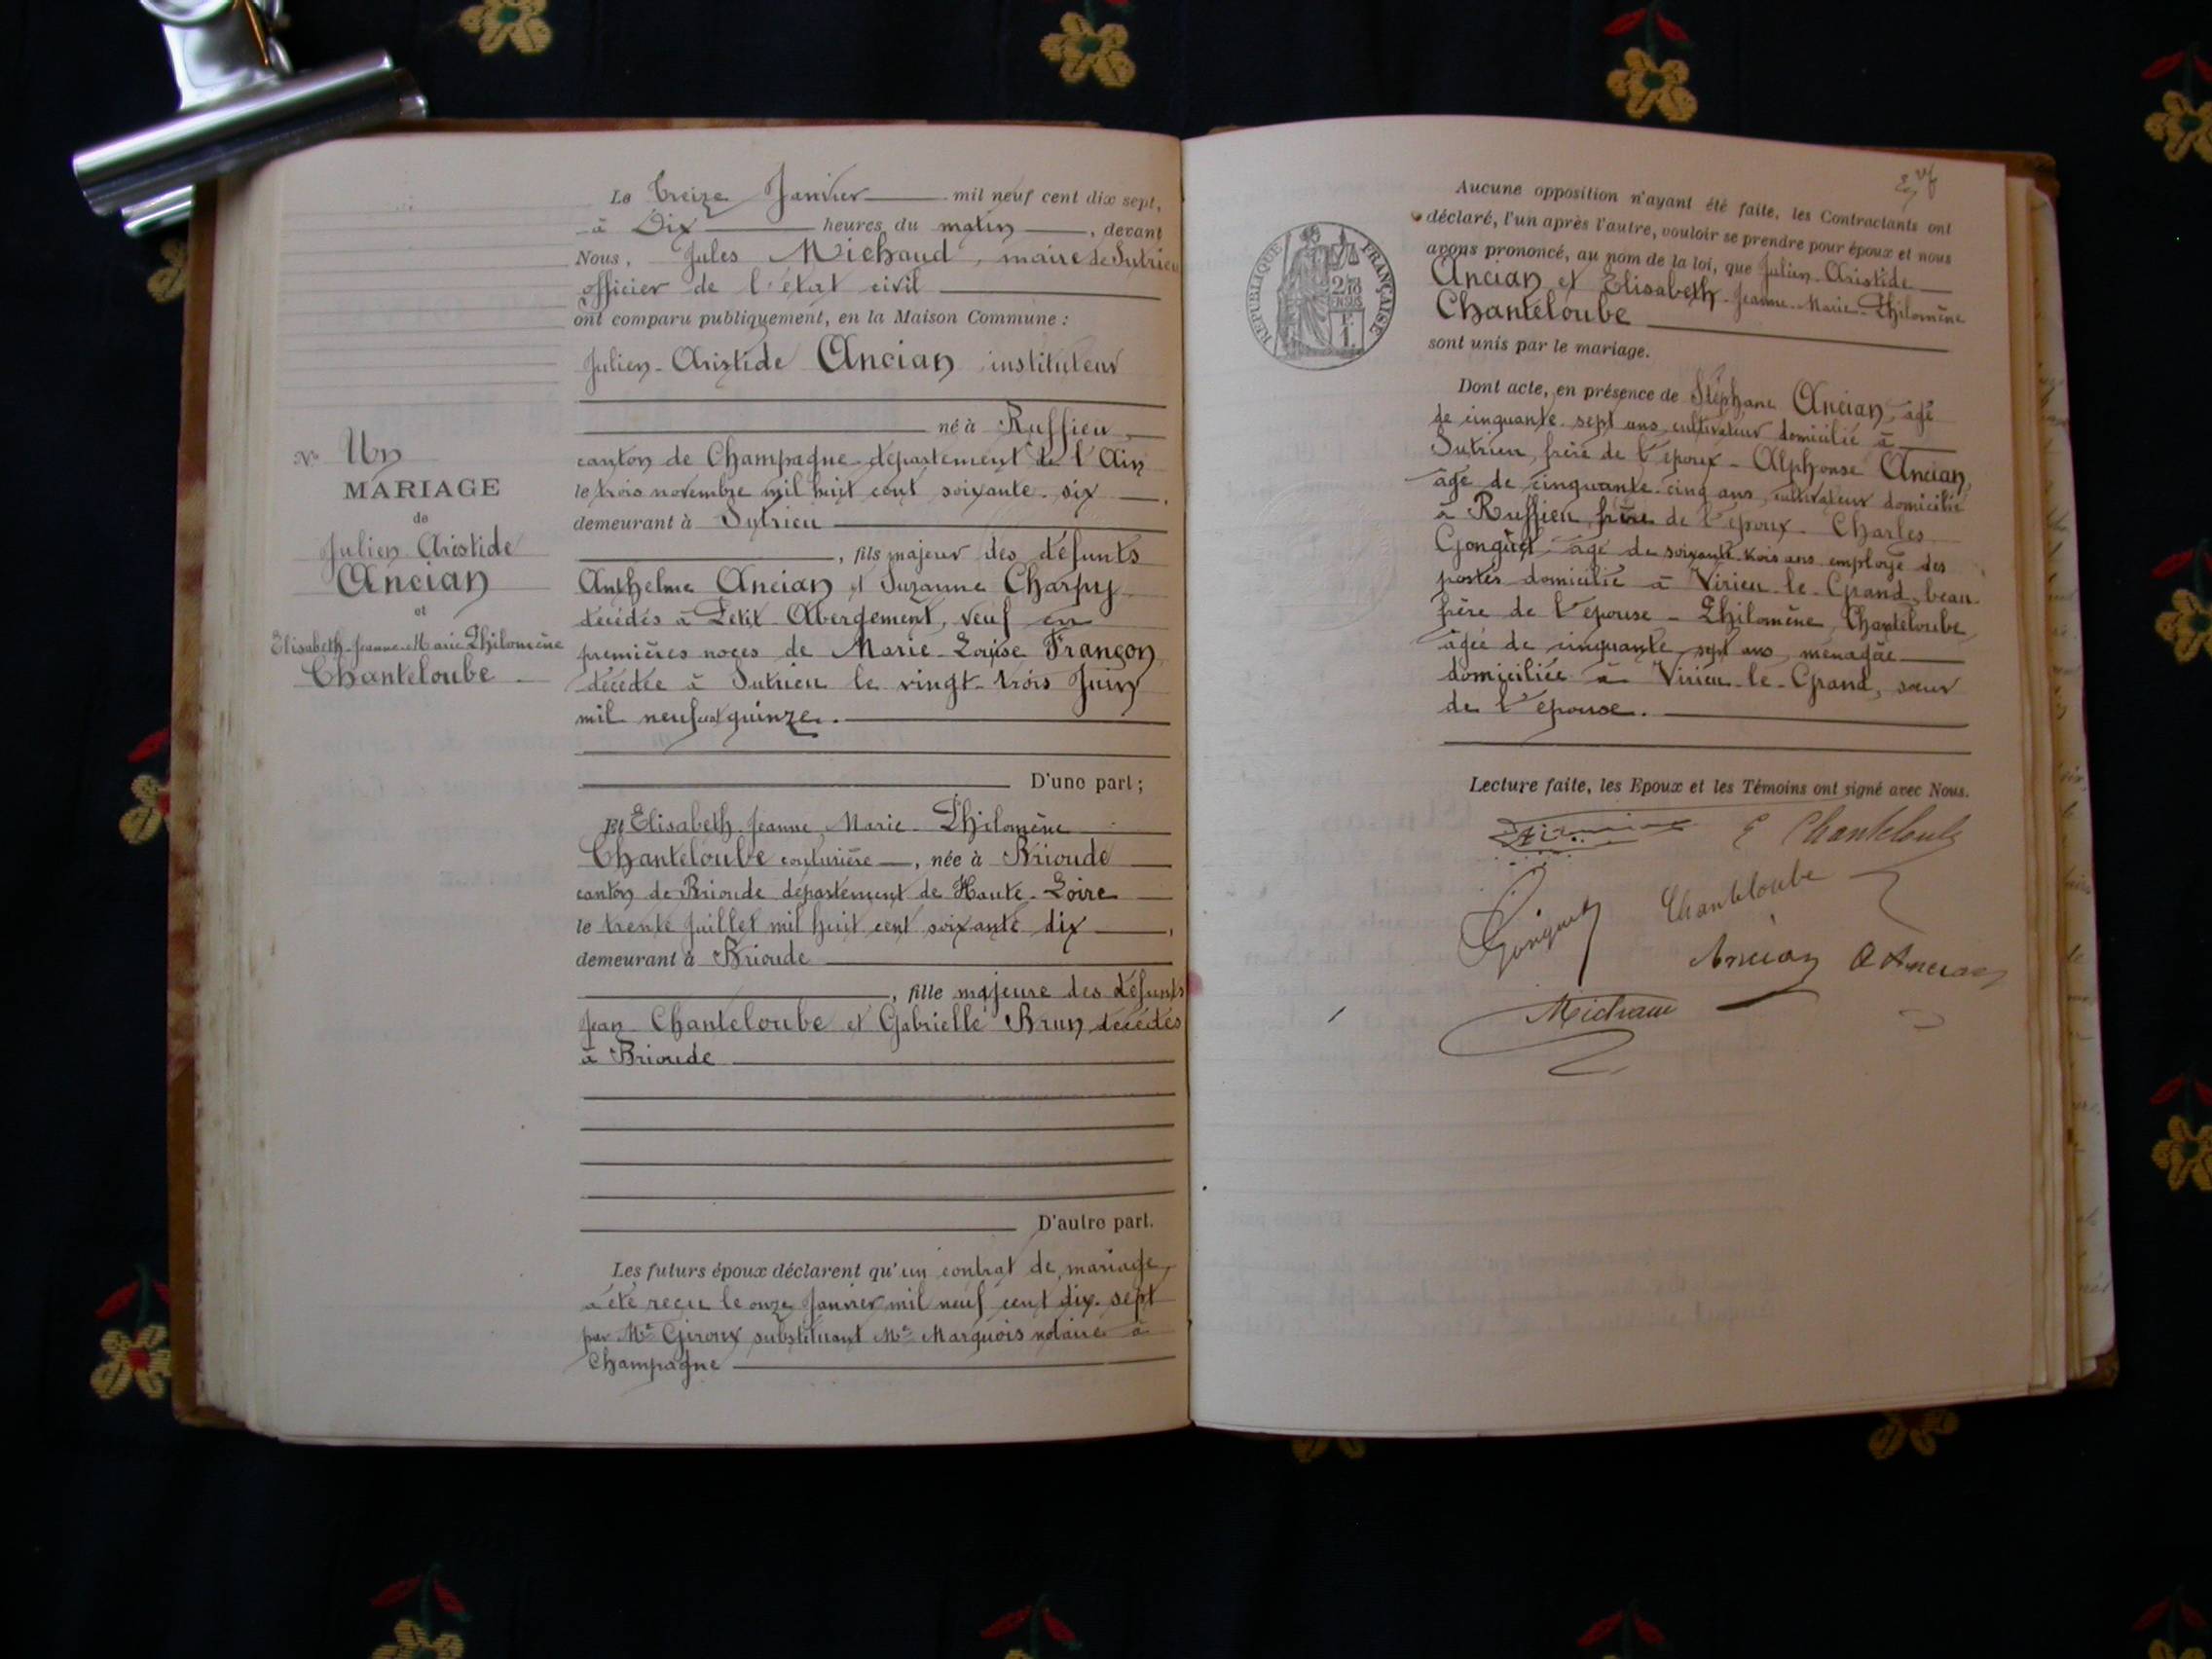 Le Treize Janvier mil neuf cent dix sept,
à Dix heures du matin, devant
Nous, Jules Michaud, maire de Sutrieu
officier de l'état civil
ont comparu publiquement, en la Maison Commune :
Julien-Aristide Ancian instituteur
né à Ruffieu
canton de Champagne département de l'Ain
le trois novembre mil huit cent soixante-six,
demeurant à Sutrieu
, fils majeur des défunts
Anthelme Ancian et Suzanne Charpy
décédés à Petit Abergement, veuf en
premières noces de Marie-Louise Françon
décédée à Sutrieu le vingt-trois Juin
mil neuf cent quinze.
D'une part ;
Et Elisabeth-Jeanne-Marie-Philomène
Chanteloube couturière, née à Brioude
canton de Brioude département de Haute-Loire
le trente Juillet mil huit cent soixante dix,
demeurant à Brioude
, fille majeure des défunts
Jean Chanteloube et Gabrielle Brun décédés
à Brioude
D'autre part.
Les futurs époux déclarent qu'un contrat de mariage
a été reçu le onze Janvier mil neuf cent dix-sept
par Me Giroux substituant Me Marquois notaire à
Champagne
No Un
MARIAGE
de
Julien Aristide
Ancian
et
Elisabeth-Jeanne-Marie Philomène
Chanteloube
RÉPUBLIQUE FRANÇAISE
Aucune opposition n'ayant été faite, les Contractants ont
déclaré, l'un après l'autre, vouloir se prendre pour époux et nous
avons prononcé, au nom de la loi, que Julien-Aristide
Ancian et Elisabeth-Jeanne-Marie-Philomène
Chanteloube
sont unis par le mariage.
Dont acte, en présence de Stéphane Ancian, âgé
de cinquante-sept ans cultivateur domicilié à
Sutrieu, frère de l'époux - Alphonse Ancian,
âgé de cinquante-cinq ans, cultivateur domicilié
à Ruffieu, frère de l'époux - Charles
Gonguet âgé de soixante-trois ans employé des
postes domicilié à Virieu-le-Grand, beau-
frère de l'épouse - Philomène Chanteloube
âgée de cinquante sept ans, ménagère
domiciliée à Virieu-le-Grand, sœur
de l'épouse.
Lecture faite, les Epoux et les Témoins ont signé avec Nous.
E Chanteloube
Gonguet
Chanteloube
Ancian
A Ancian
Michaud